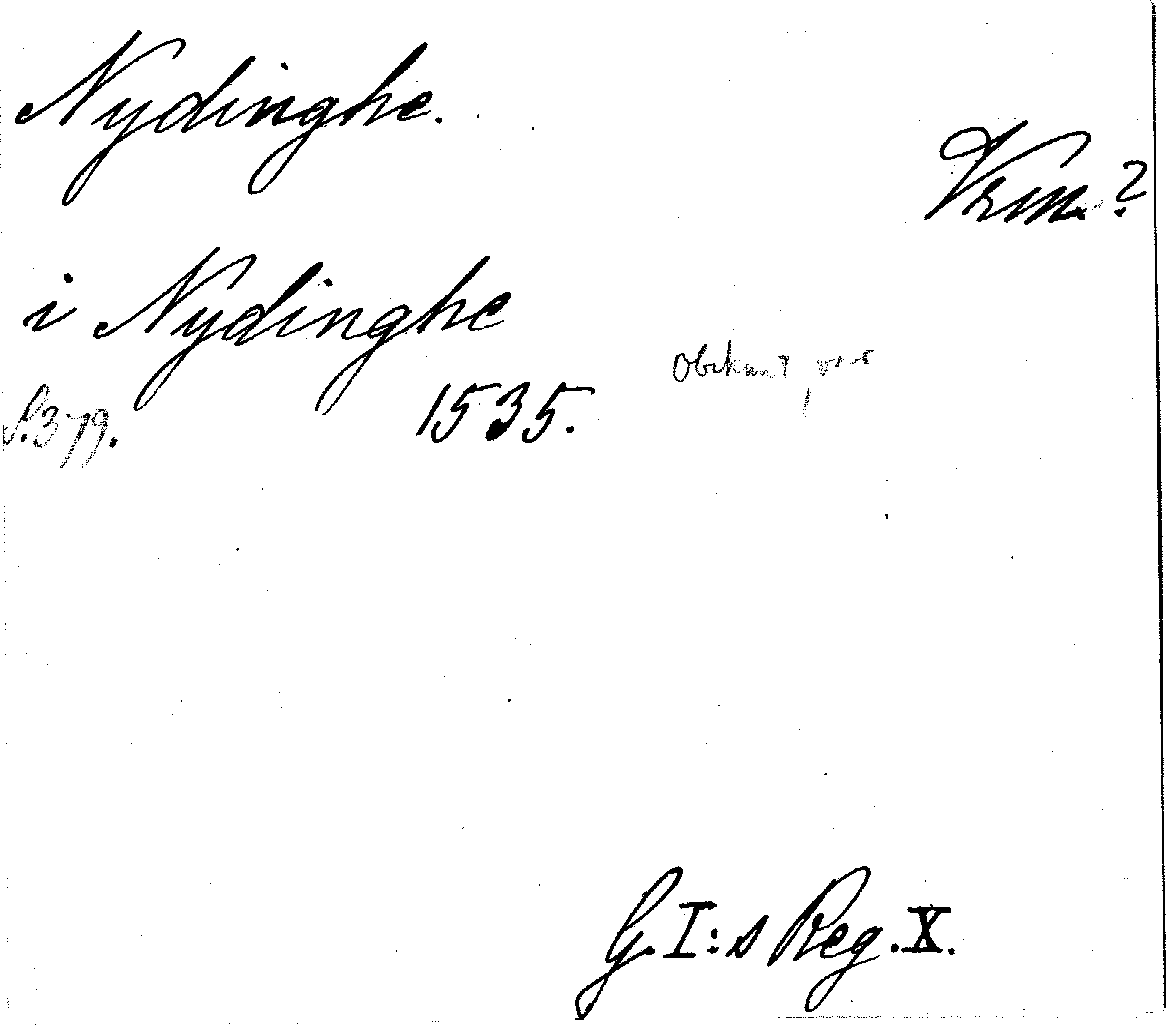 Nydinghe.
Vrm.?
i Nydinghe
Obekant var
S. 379.
1535.
G. I:s Reg. X.